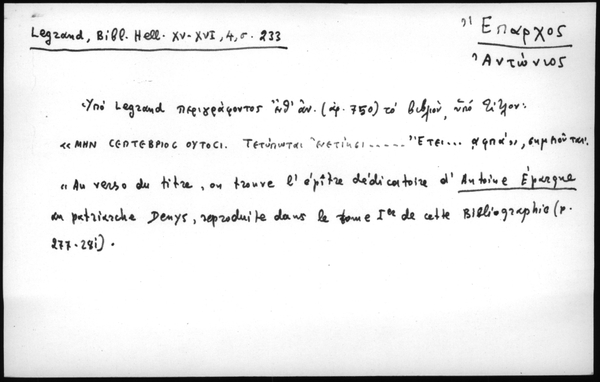 Legrand, Bibl. Hell. XV-XVI, 4, σ. 233
Ἔπαρχος
Ἀντώνιος
Ὑπό Legrand περιγράφοντος (ἀρ. 750) τό βιβλίον, ὑπό τίτλον:
«ΜΗΝ CΕΠΤΕΒΡΙΟC ΟΥΤΟCΙ. Τετύπωται Ἐνετίησι ..... Ἔτει... αφπα'», σημειοῦται:
«Au verso du titre, on trouve l'épître dédicatoire d'Antoine Éparque
au patriarche Denys, reproduite dans le tome Ier de cette Bibliographie (p.
277-281).